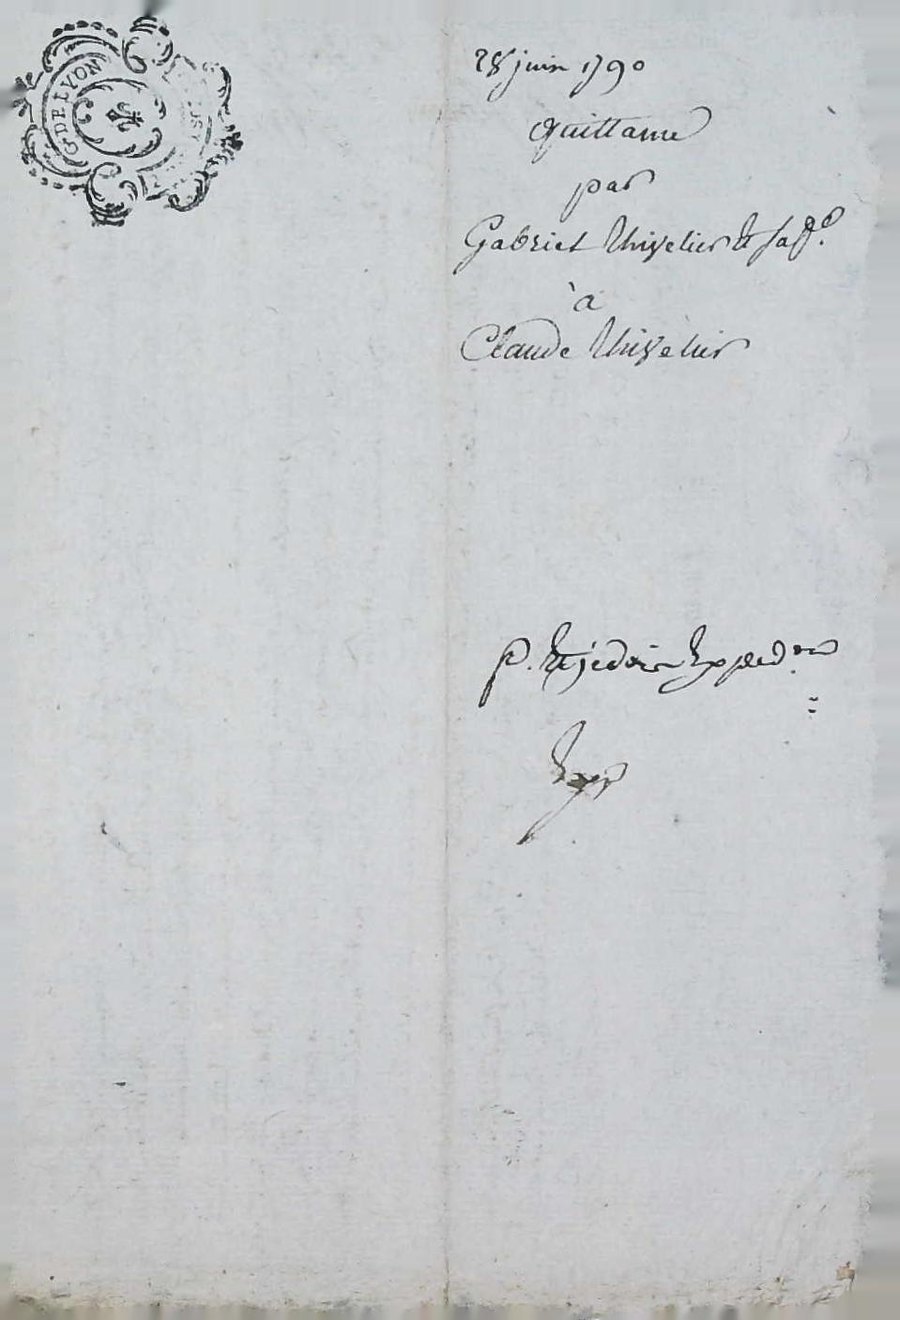 G. DE LYON
28 juin 1790
quittance
par
Gabriel Thivelier & sa f.e
à
Claude Thivelier
p.